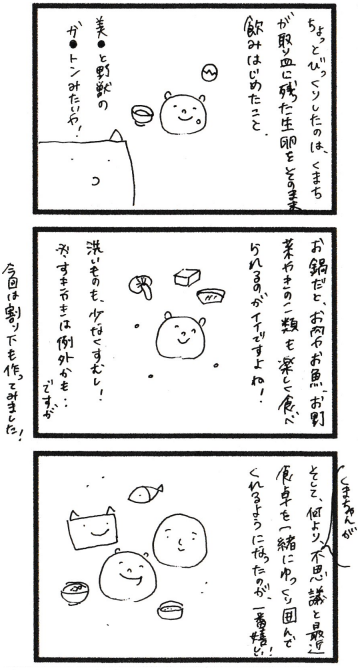 ちょっとびっくりしたのは、くまち
が取り皿に残った生卵をそのまま
飲みはじめたこと。
美●と野獣の
ガ●トンみたいや!
お鍋だと、お肉やお魚、お野
菜やきのこ類も楽しく食べ
られるのがイイですよね!
洗いものも、少なくすむし!
※すきやきは例外かも‥
ですが
今回は割り下も作ってみました!
くまちゃんが
そして、何より、不思議と最近
食卓を一緒にゆっくり囲んで
くれるようになったのが、一番嬉しい!!